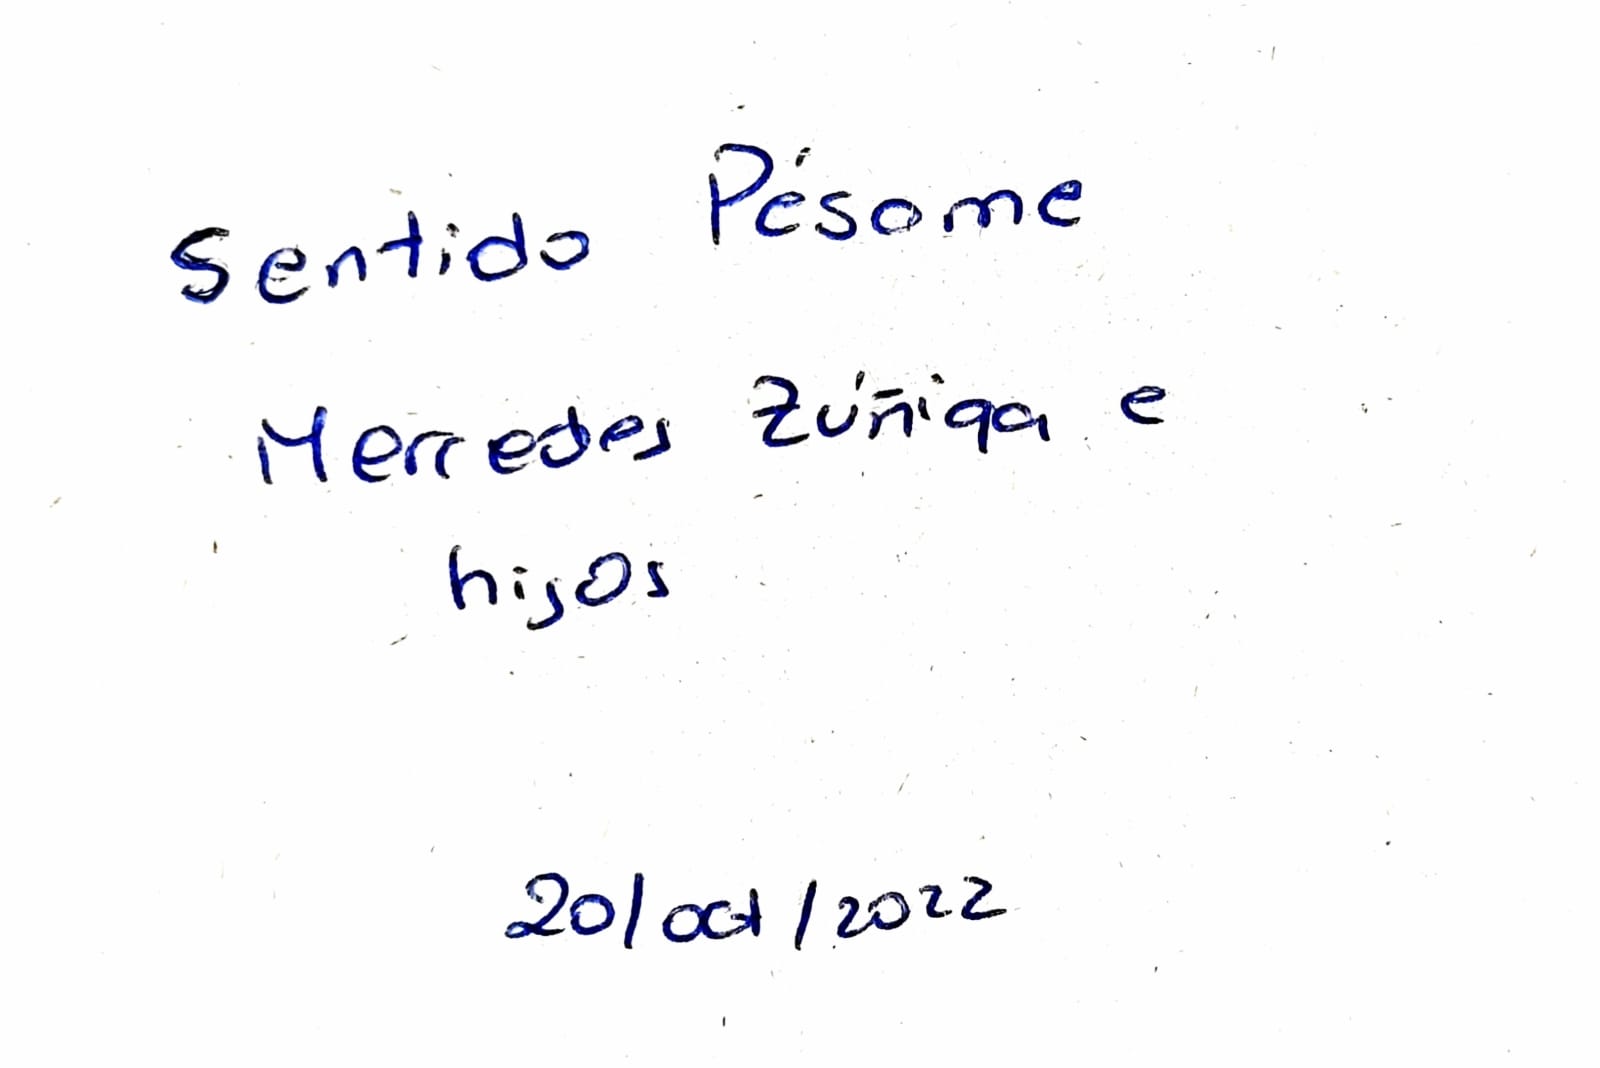 Sentido Pésame
Mercedes Zúñiga e
hijos
20/oct/2022